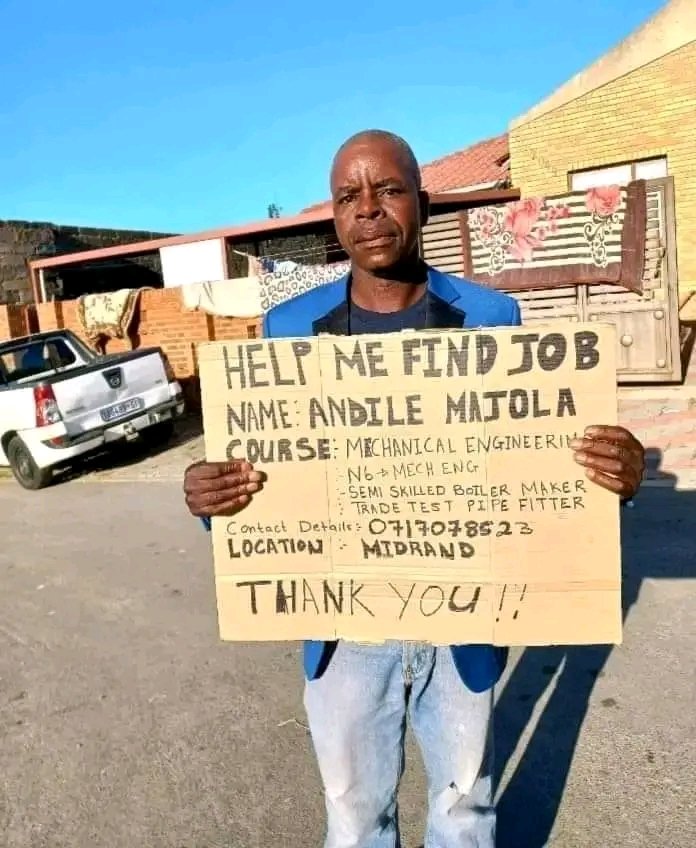 HELP ME FIND JOB
NAME: ANDILE MAJOLA
COURSE: MECHANICAL ENGINEERIN
:- N6 → MECH ENG
:- SEMI SKILLED BOILER MAKER
: TRADE TEST PIPE FITTER
Contact Details:- 0717078523
LOCATION :- MIDRAND
THANK YOU!!